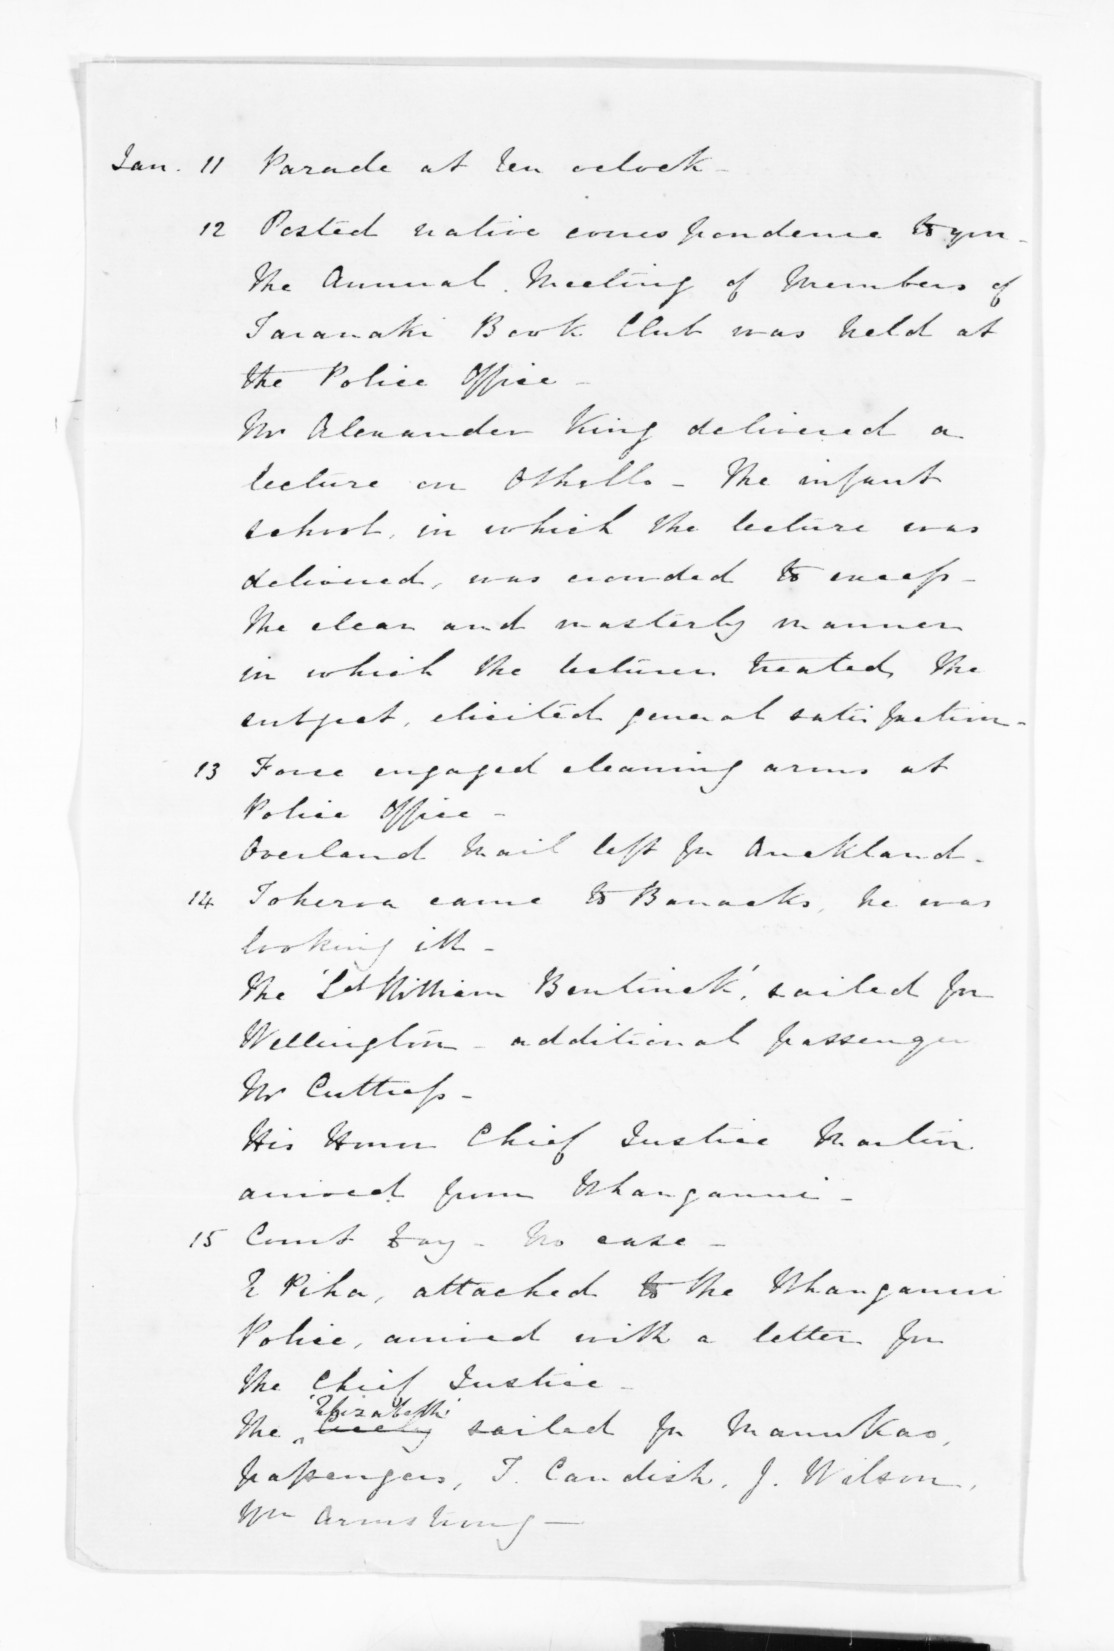 Jan. 11 Parade at ten oclock -
12 Posted native correspondence to
The Annual Meeting of Members of
Taranaki Book Club was held at
the Police Office -
Mr Alexander King delivered a
lecture on Othello - The infant
school, in which the lecture was
delivered, was crowded to excess -
The clear and masterly manner
in which the lecturer treated the
subject, elicited general satisfaction -
13 Force engaged cleaning arms at
Police Office -
Overland Mail left for Auckland -
14 came to Barracks, he was
looking ill -
The 'Ld William Bentinck', sailed for
Wellington - additional passenger
Mr Cuttress -
His Honor Chief Justice Martin
arrived from Whanganui -
15 Court Day - No case -
E Piha, attached to the Whanganui
Police, arrived with a letter for
the Chief Justice -
'Elizabeth'
The sailed for Manukao,
passengers, T. Candish, J. Wilson,
Wm Armstrong -